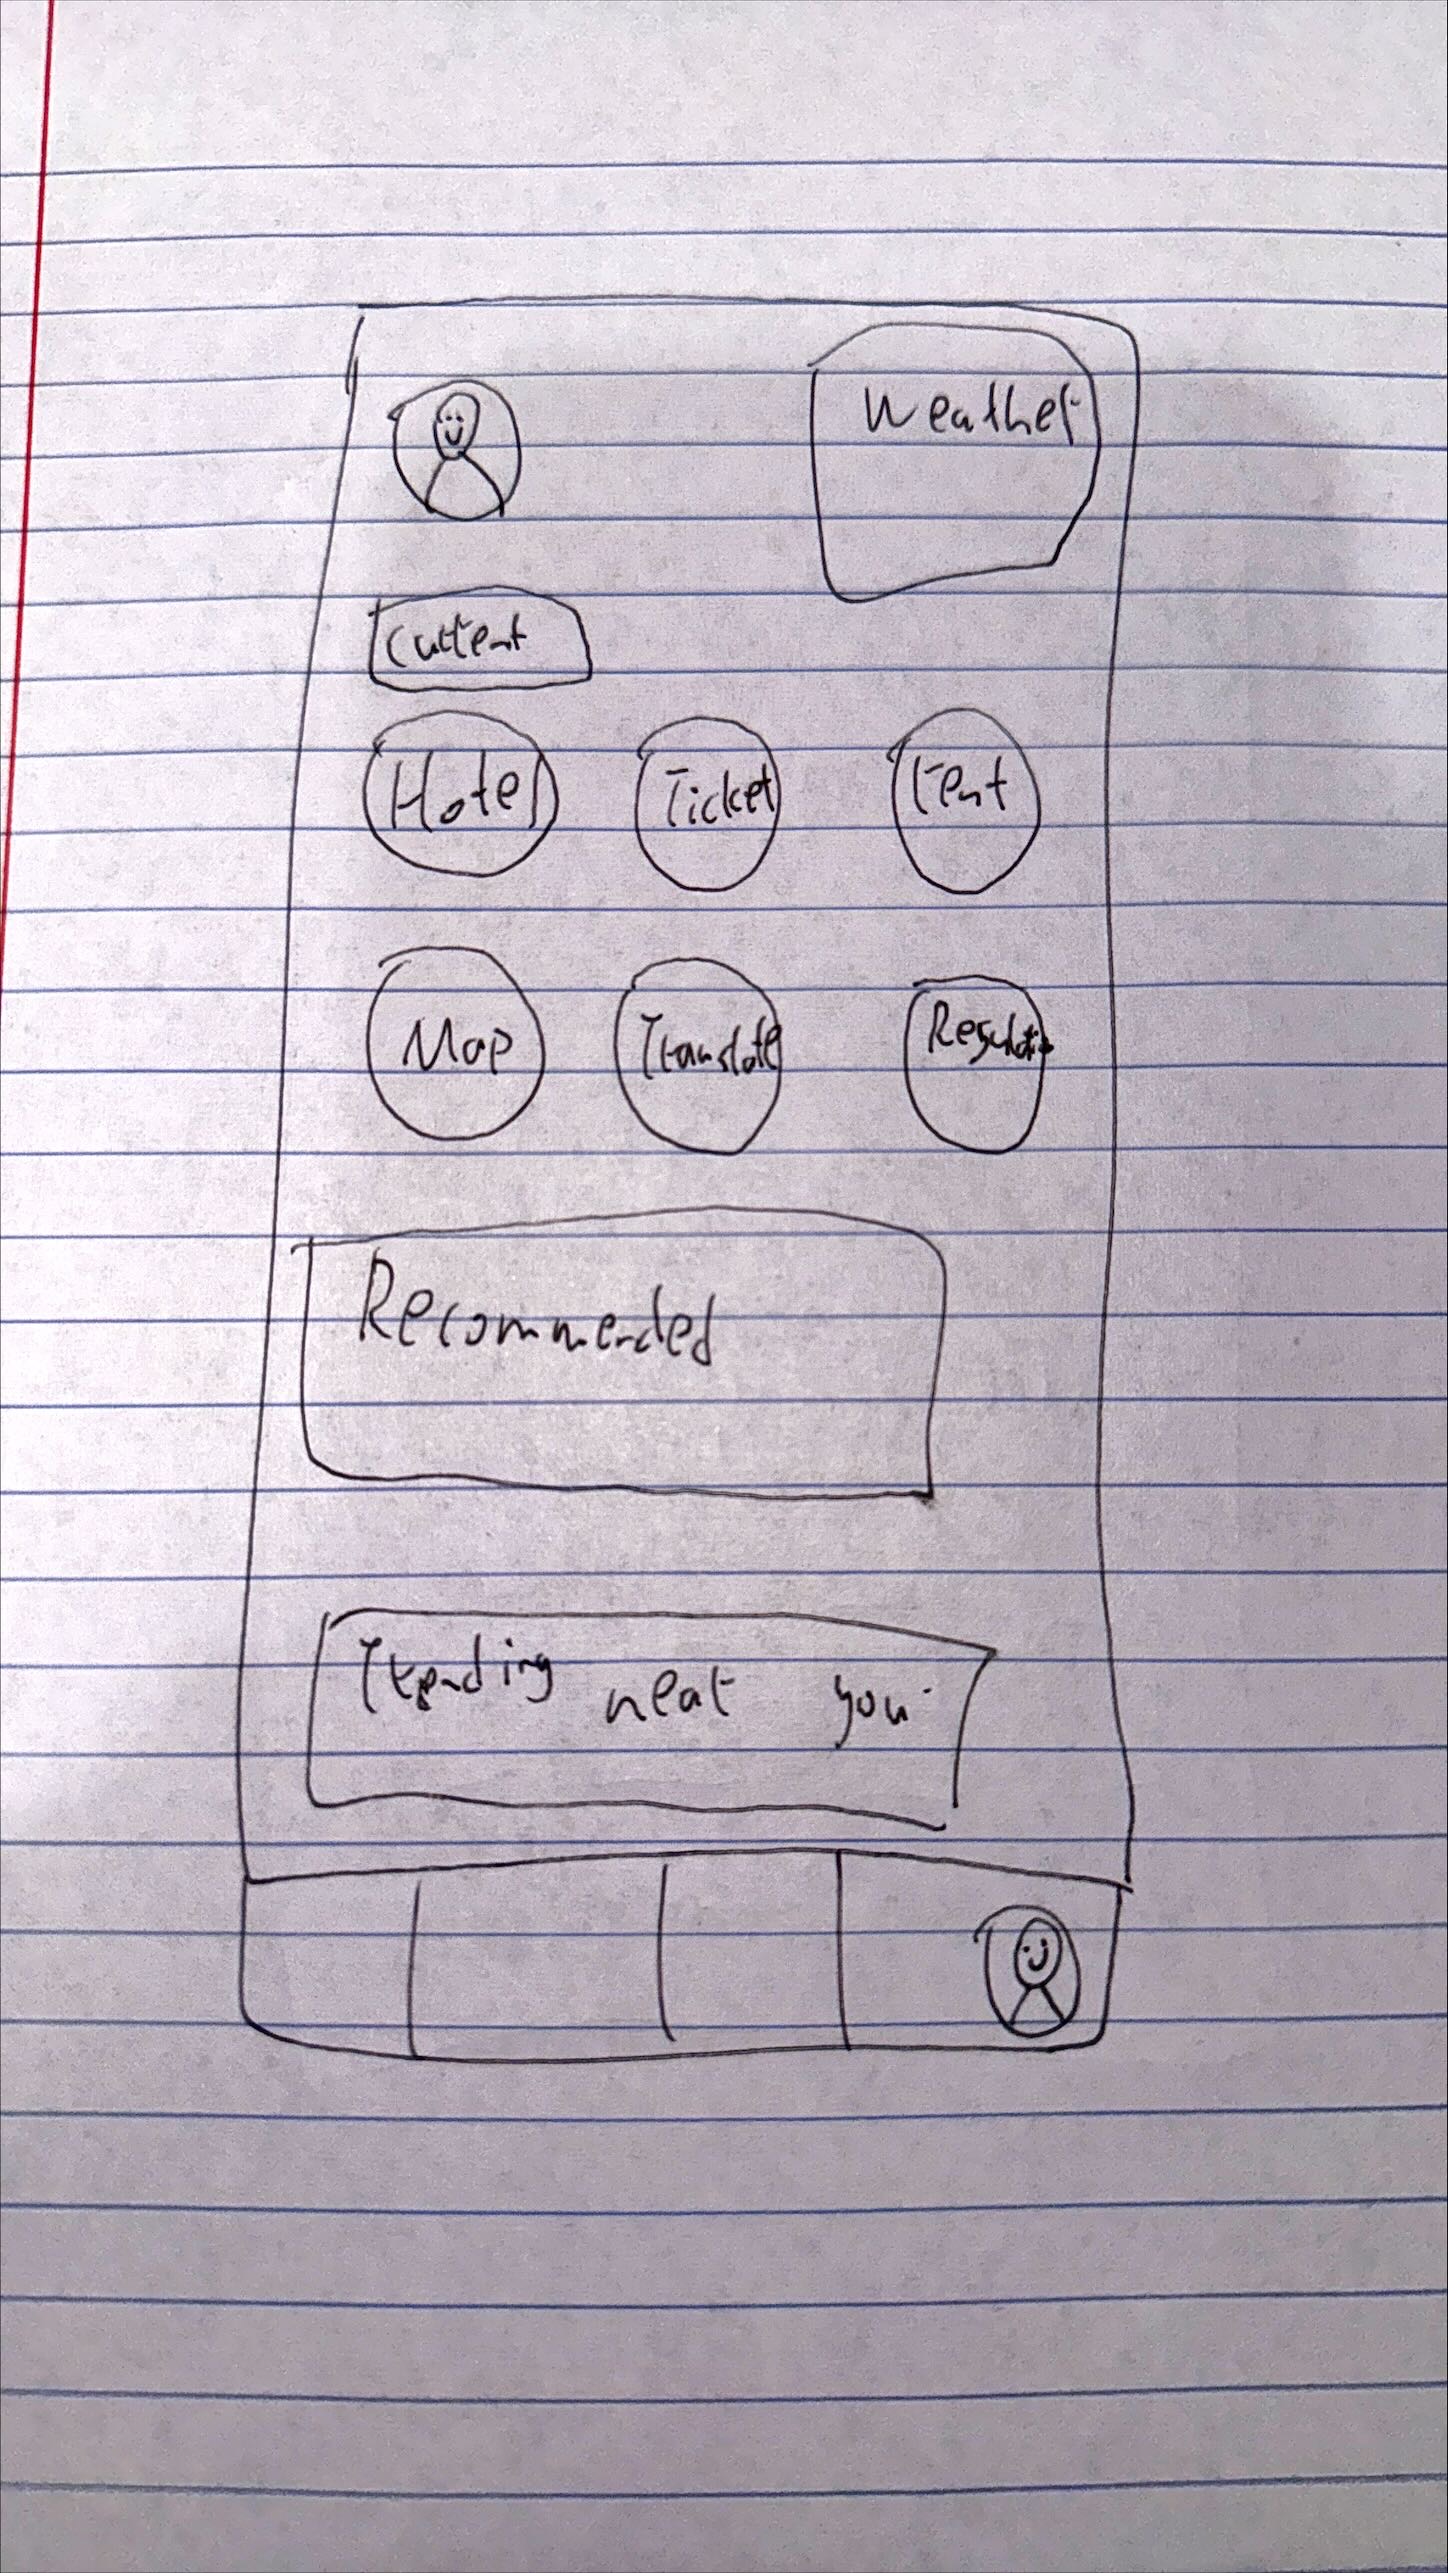 Weather
Current
Hotel Ticket rent
Map Translate Regulation
Recommended
Trending near you